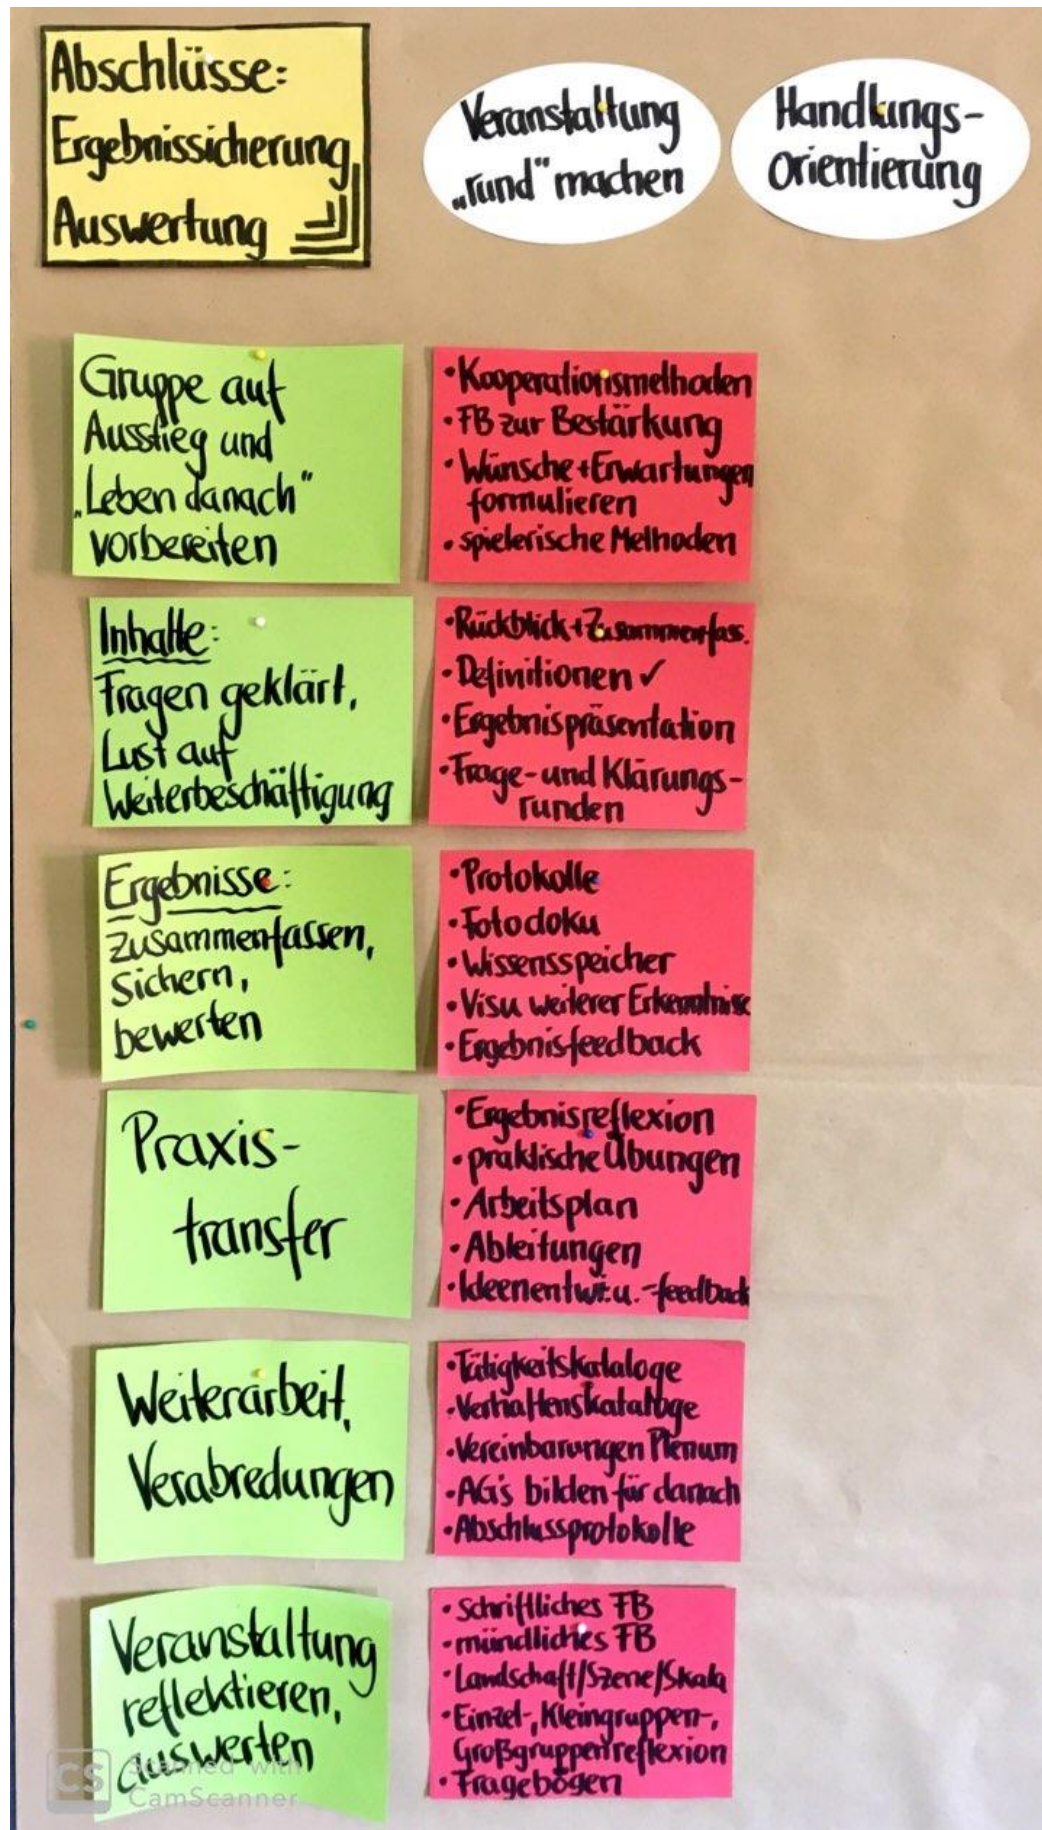 Abschlüsse:
Ergebnissicherung,
Auswertung
Veranstaltung
„rund“ machen
Handlungs-
orientierung
Gruppe auf
Ausstieg und
„Leben danach“
vorbereiten
• Kooperationsmethoden
• FB zur Bestärkung
• Wünsche + Erwartungen
formulieren
• spielerische Methoden
Inhalte:
Fragen geklärt,
Lust auf
Weiterbeschäftigung
• Rückblick + Zusammenfass.
• Definitionen ✓
• Ergebnispräsentation
• Frage- und Klärungs-
runden
Ergebnisse:
zusammenfassen,
sichern,
bewerten
• Protokolle
• Fotodoku
• Wissensspeicher
• Visu weiterer Erkenntnisse
• Ergebnisfeedback
Praxis-
transfer
• Ergebnisreflexion
• praktische Übungen
• Arbeitsplan
• Ableitungen
• Ideenentwi. u. -feedback
Weiterarbeit,
Verabredungen
• Tätigkeitskataloge
• Verhaltenskataloge
• Vereinbarungen Plenum
• AG's bilden für danach
• Abschlussprotokolle
Veranstaltung
reflektieren,
auswerten
• Schriftliches FB
• mündliches FB
• Landschaft/Szene/Skala
• Einzel-, Kleingruppen-,
Großgruppenreflexion
• Fragebögen
CS Scanned with
CamScanner